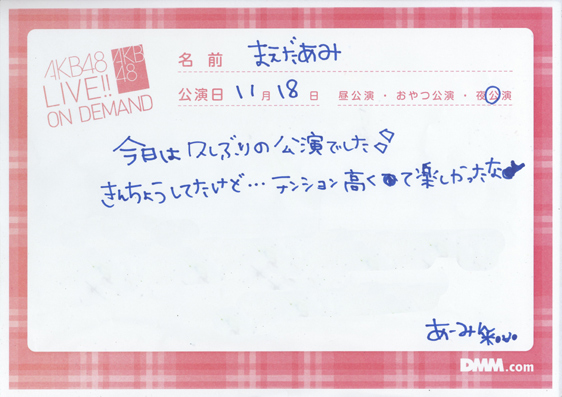 AKB48
LIVE!!
ON DEMAND
AKB
48
名前 まえだあみ
公演日 11月18日 昼公演・おやつ公演・夜公演
今日は久しぶりの公演でした
きんちょうしてたけど…テンション高くて楽しかったな
あーみ
DMM.com